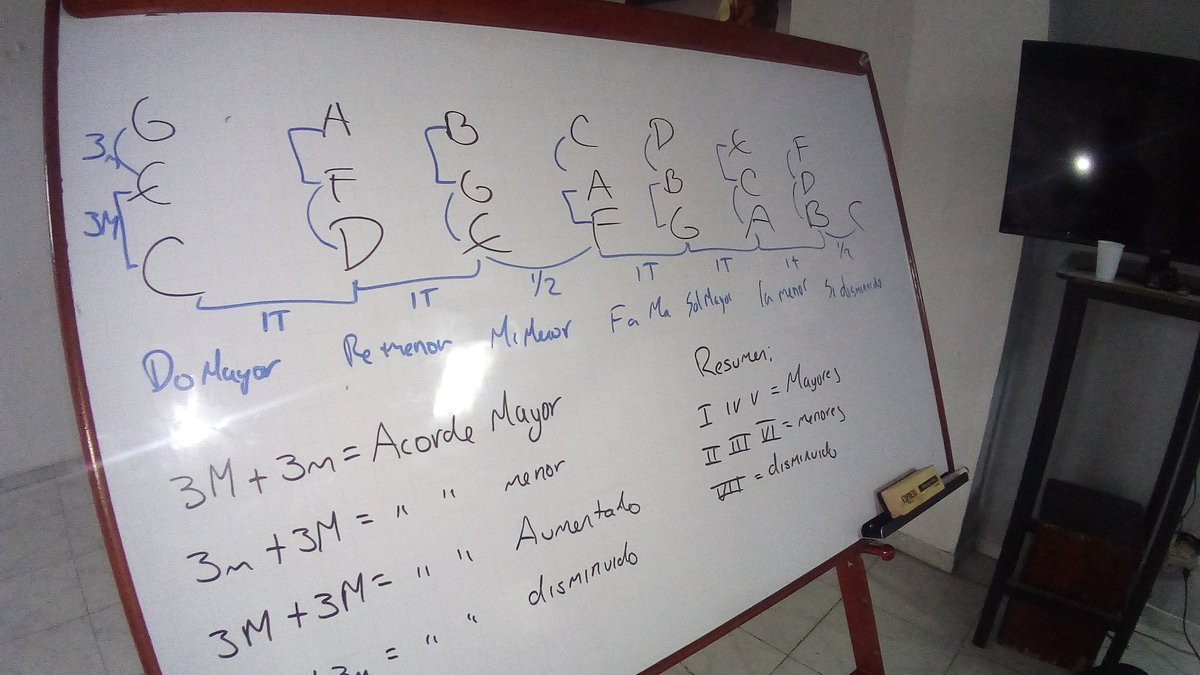 G A B C D E F
3m
E F G A B C D
3M
C D E F G A B C
1T 1T 1/2 1T 1T 1t 1/2
Do Mayor Re menor Mi Menor Fa Ma Sol Mayor la menor Si disminuido
3M + 3m = Acorde Mayor
3m + 3M = " " menor
3M + 3M = " " Aumentado
+ 3m = " " disminuido
Resumen:
I IV V = Mayores
II III VI = menores
VII = disminuido
EXPRESS